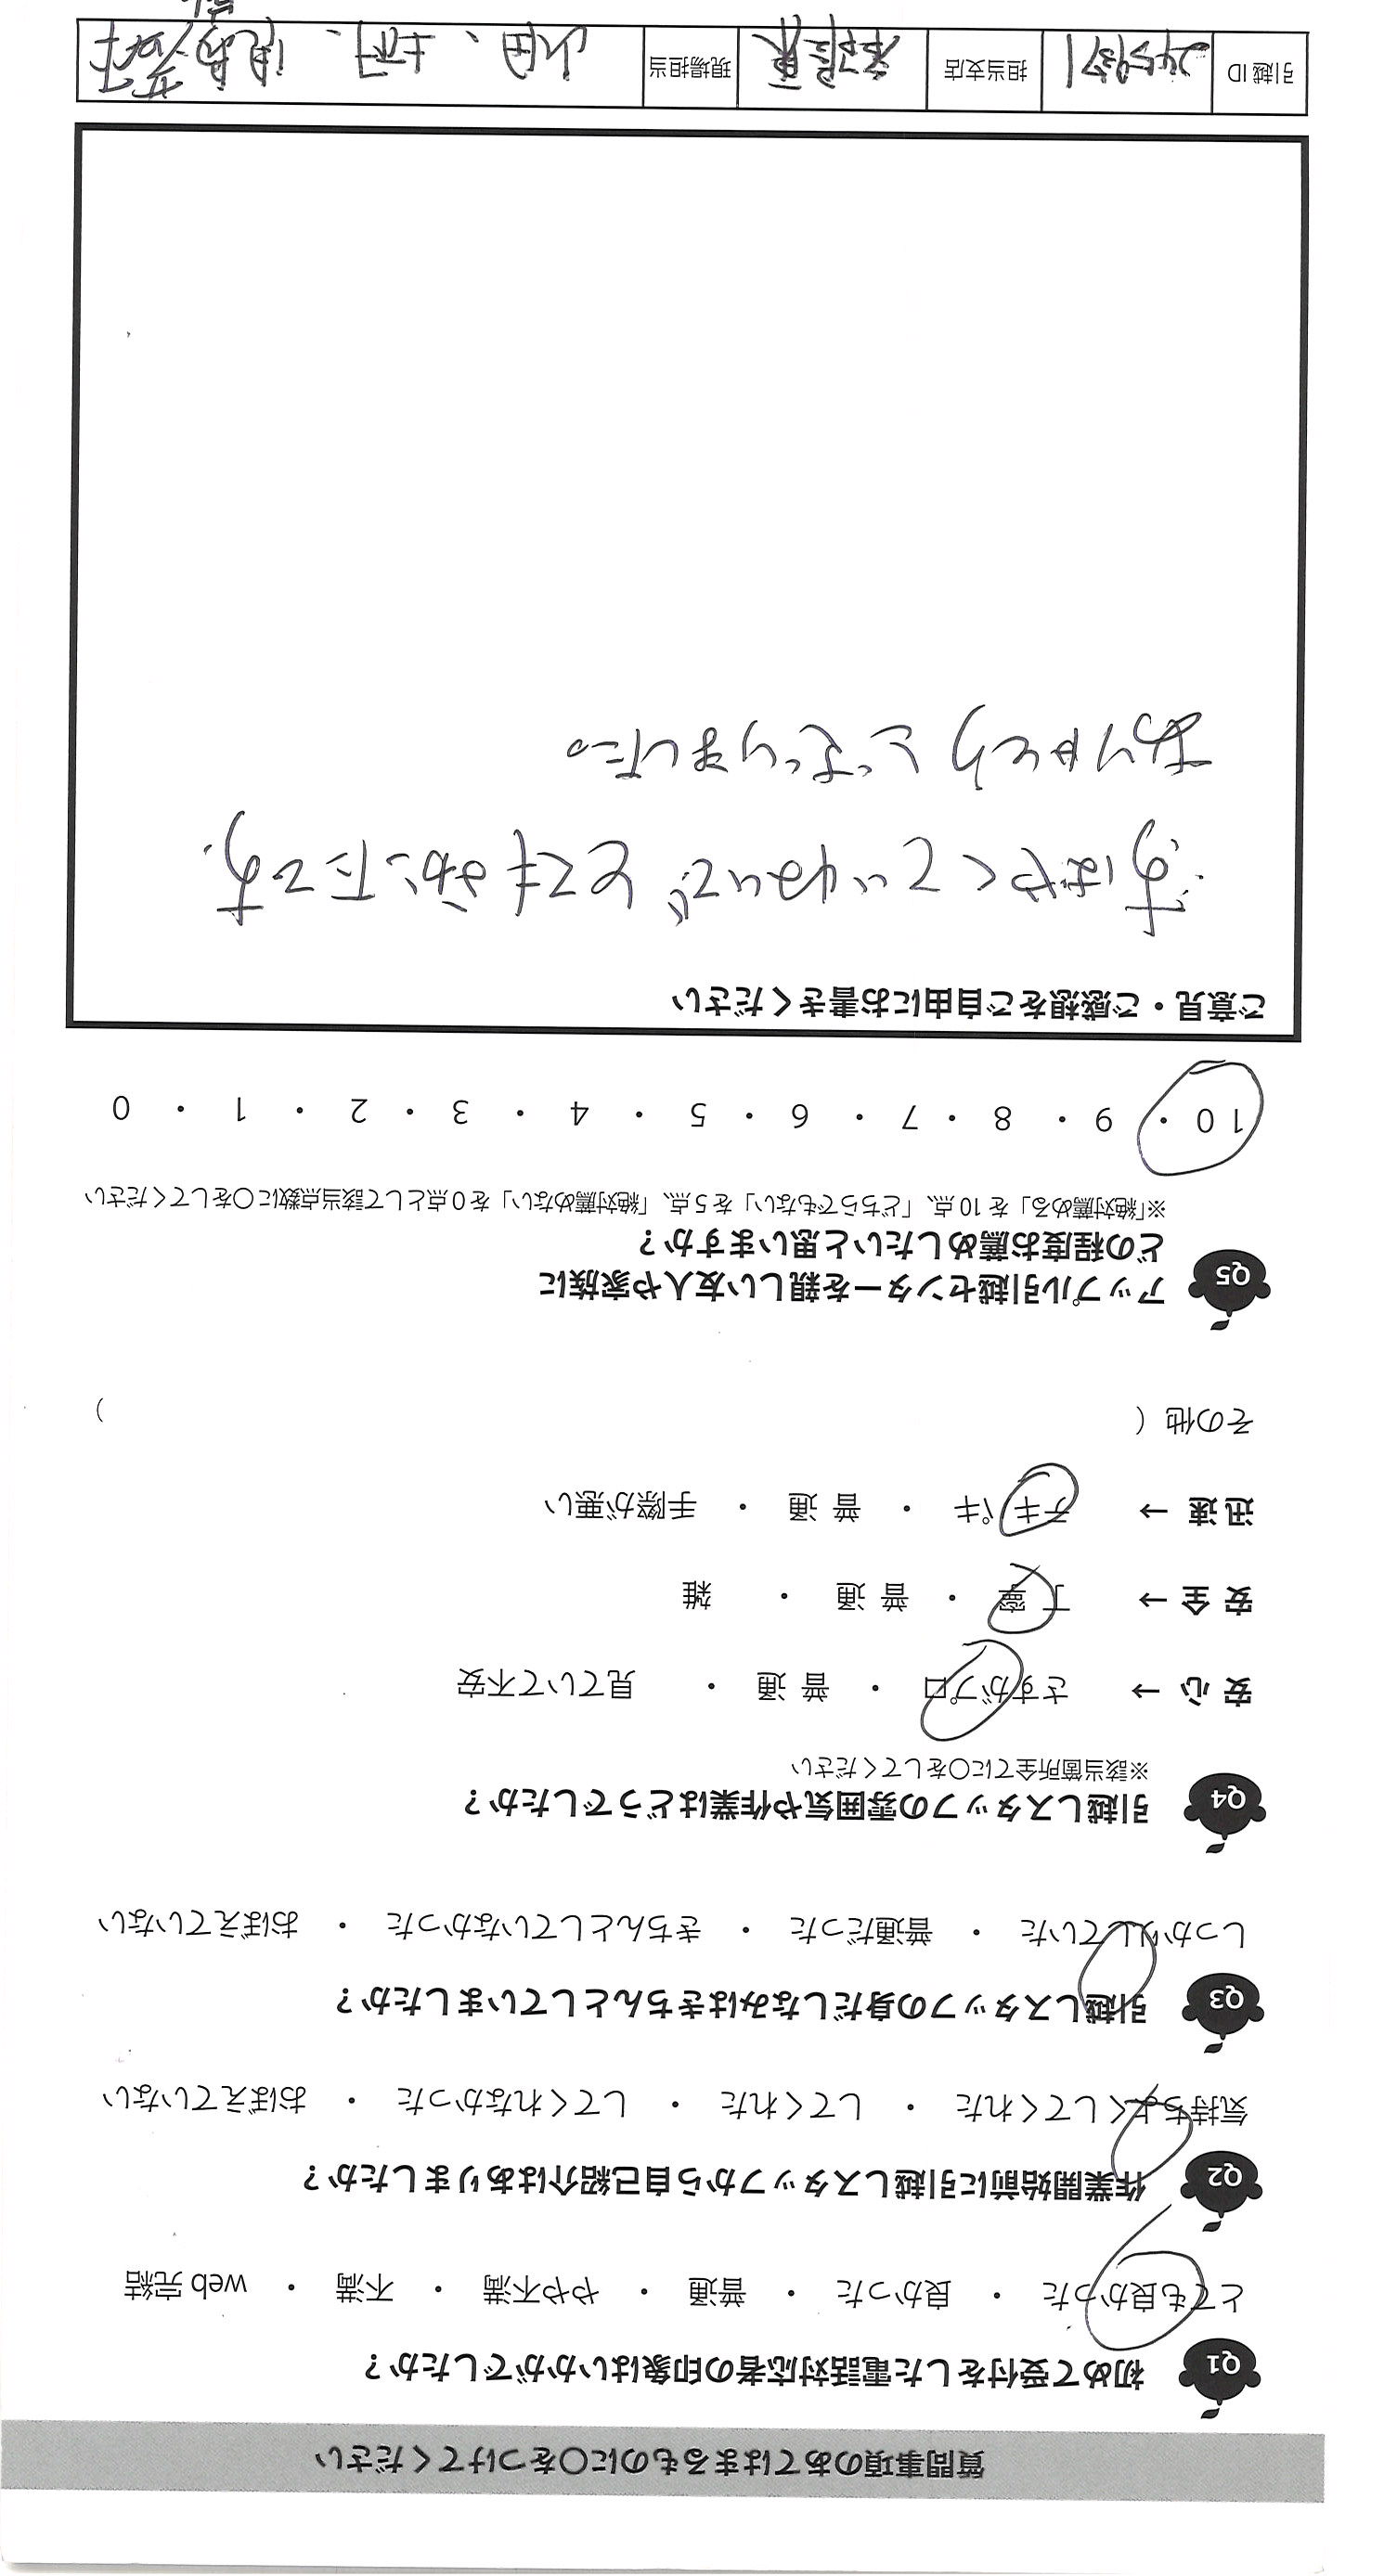 質問事項のあてはまるものに〇をつけてください
Q1 初めて受付をした電話対応者の印象はいかがでしたか？
とても良かった ・ 良かった ・ 普通 ・ やや不満 ・ 不満 ・ web 完結
Q2 作業開始前に引越しスタッフから自己紹介はありましたか？
気持ちよくしてくれた ・ してくれた ・ してくれなかった ・ おぼえていない
Q3 引越しスタッフの身だしなみはきちんとしていましたか？
しっかりしていた ・ 普通だった ・ きちんとしていなかった ・ おぼえていない
Q4 引越しスタッフの雰囲気や作業はどうでしたか？
※該当箇所全てに〇をしてください
安 心 → さすがプロ ・ 普 通 ・ 見ていて不安
安 全 → 丁 寧 ・ 普 通 ・ 雑
迅 速 → テキパキ ・ 普 通 ・ 手際が悪い
その他（ ）
Q5 アップル引越センターを親しい友人や家族に
どの程度お薦めしたいと思いますか？
※「絶対薦める」を 10 点、「どちらでもない」を 5 点、「絶対薦めない」を 0 点として該当点数に〇をしてください
10 ・ 9 ・ 8 ・ 7 ・ 6 ・ 5 ・ 4 ・ 3 ・ 2 ・ 1 ・ 0
ご意見・ご感想をご自由にお書きください
すばやくていねいで、とても
ありがとうございました。
引越 ID 担当支店 現場担当 山田、